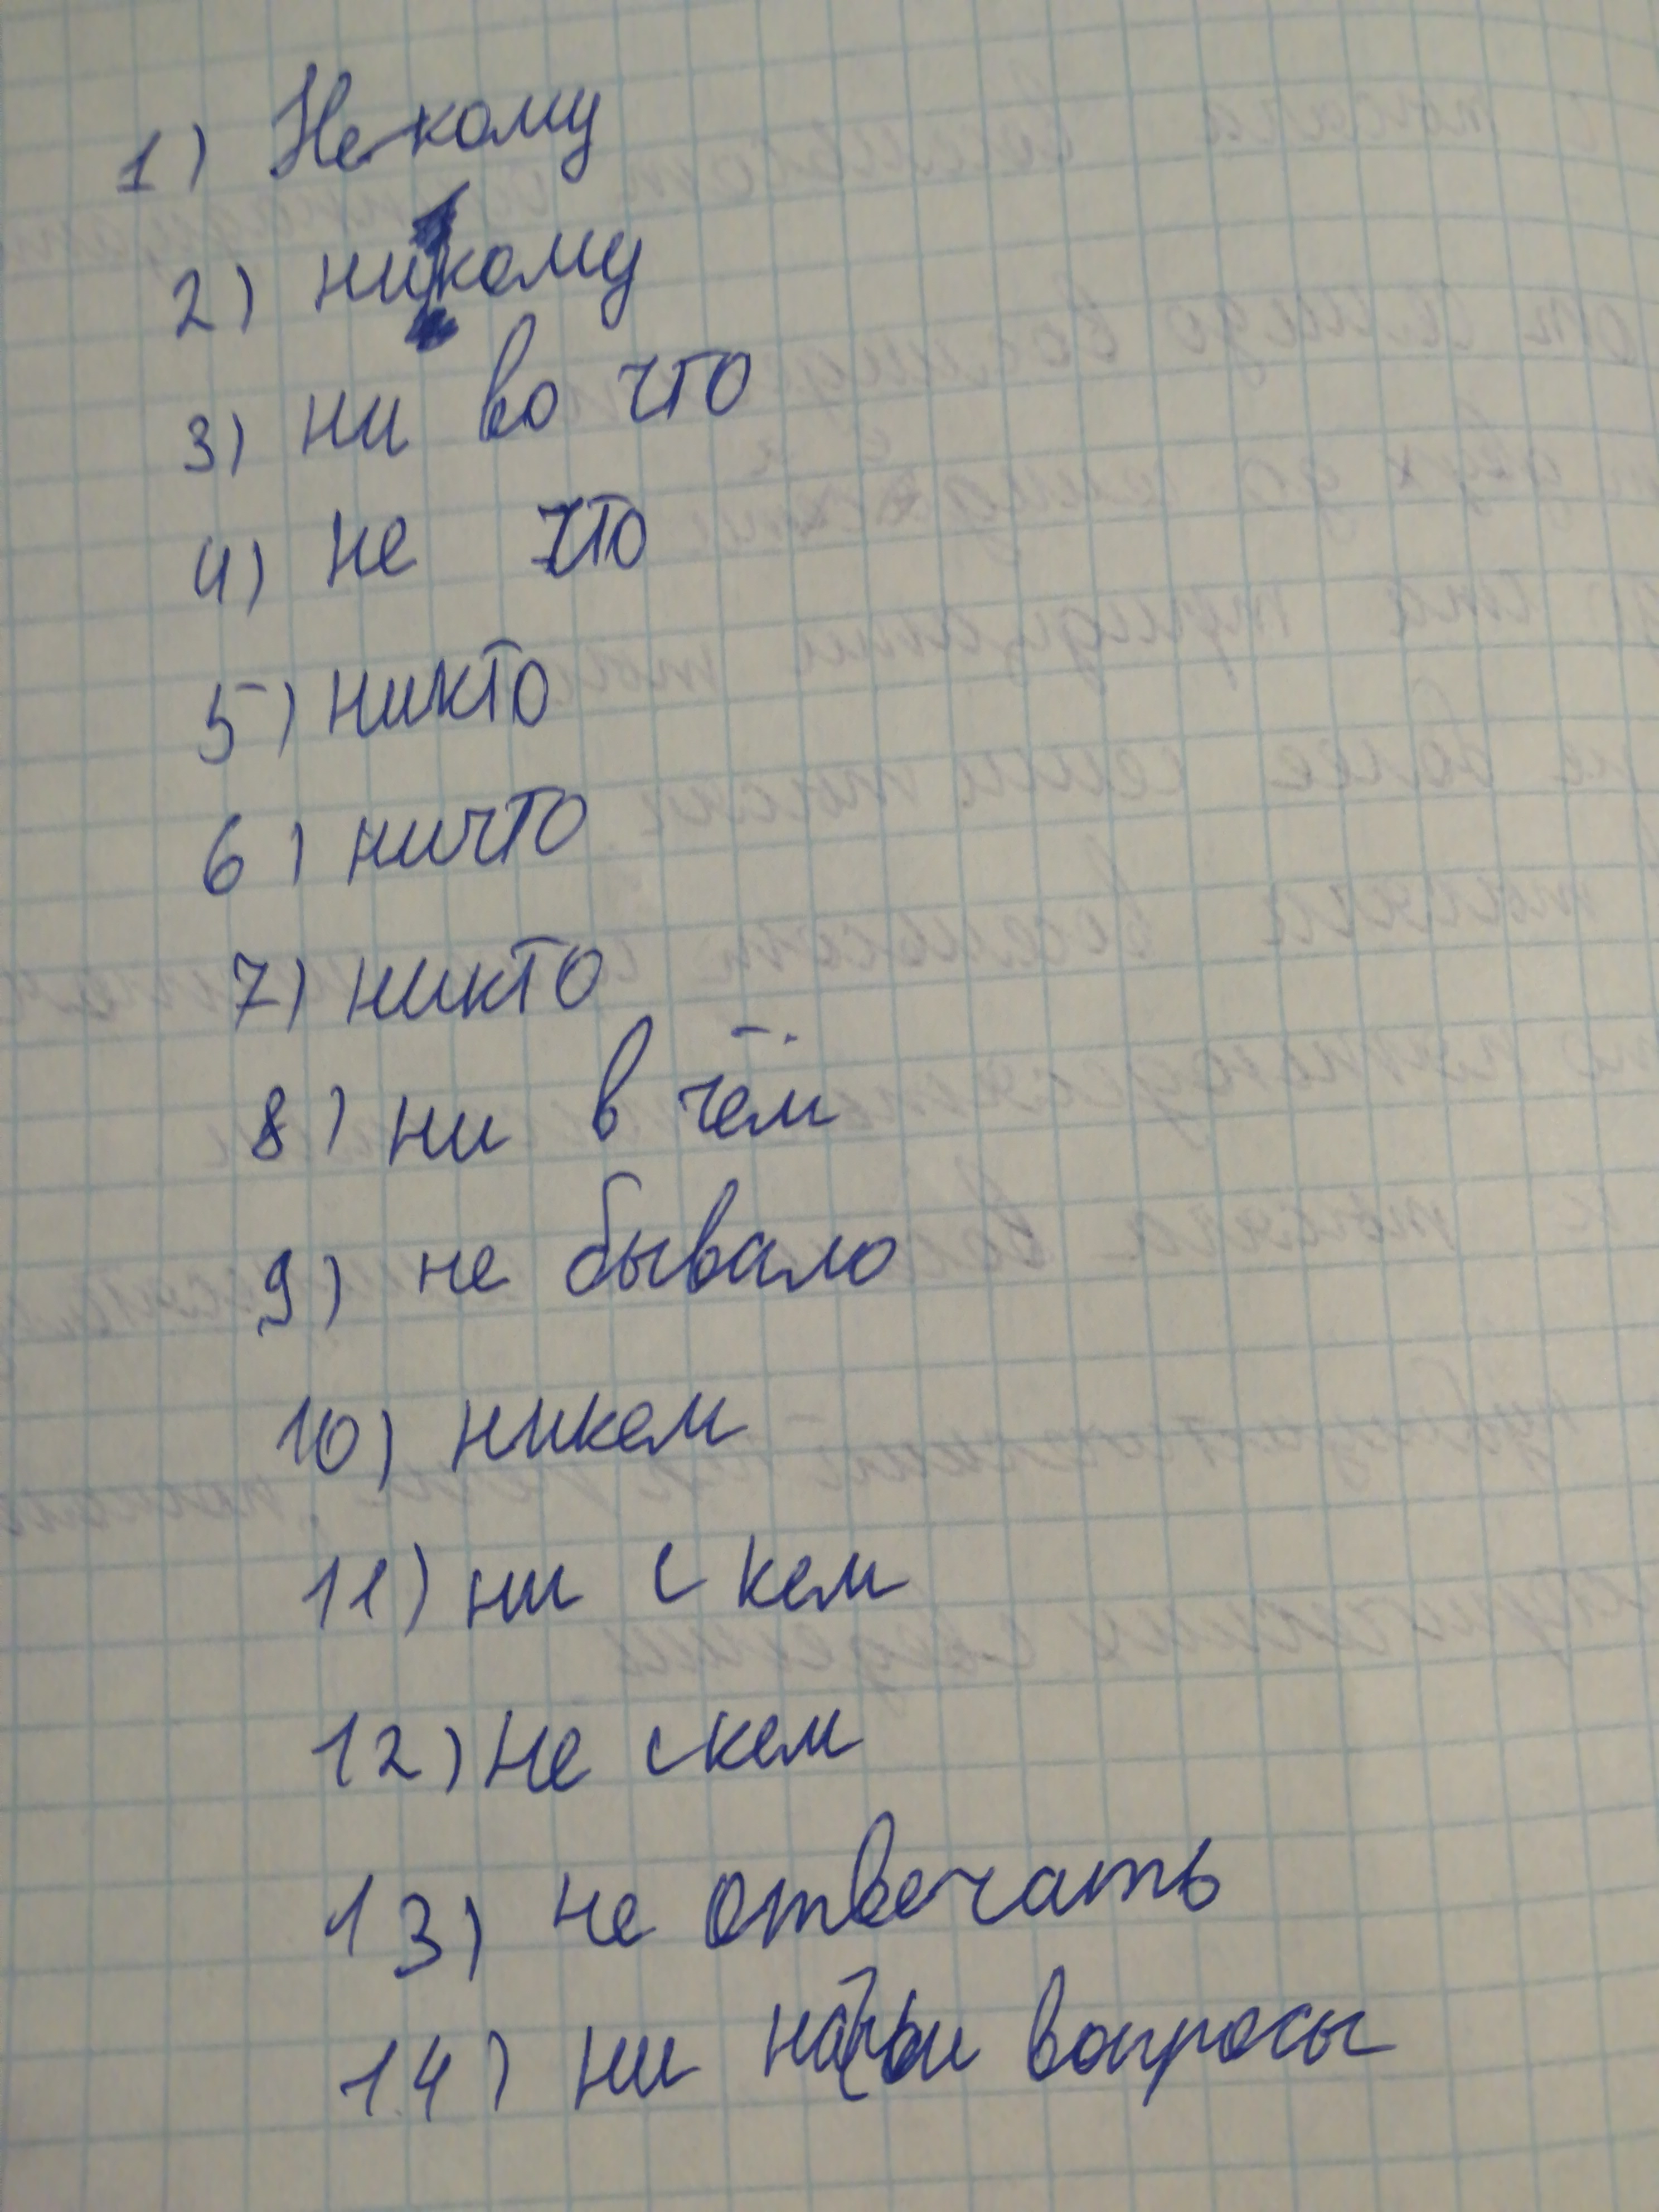 1) Некому
2) никому
3) ни во что
4) не что
5) никто
6) ничто
7) никто
8) ни в чём
9) не бывало
10) никем
11) ни с кем
12) не с кем
13) не отвечать
14) ни на чьи вопросы